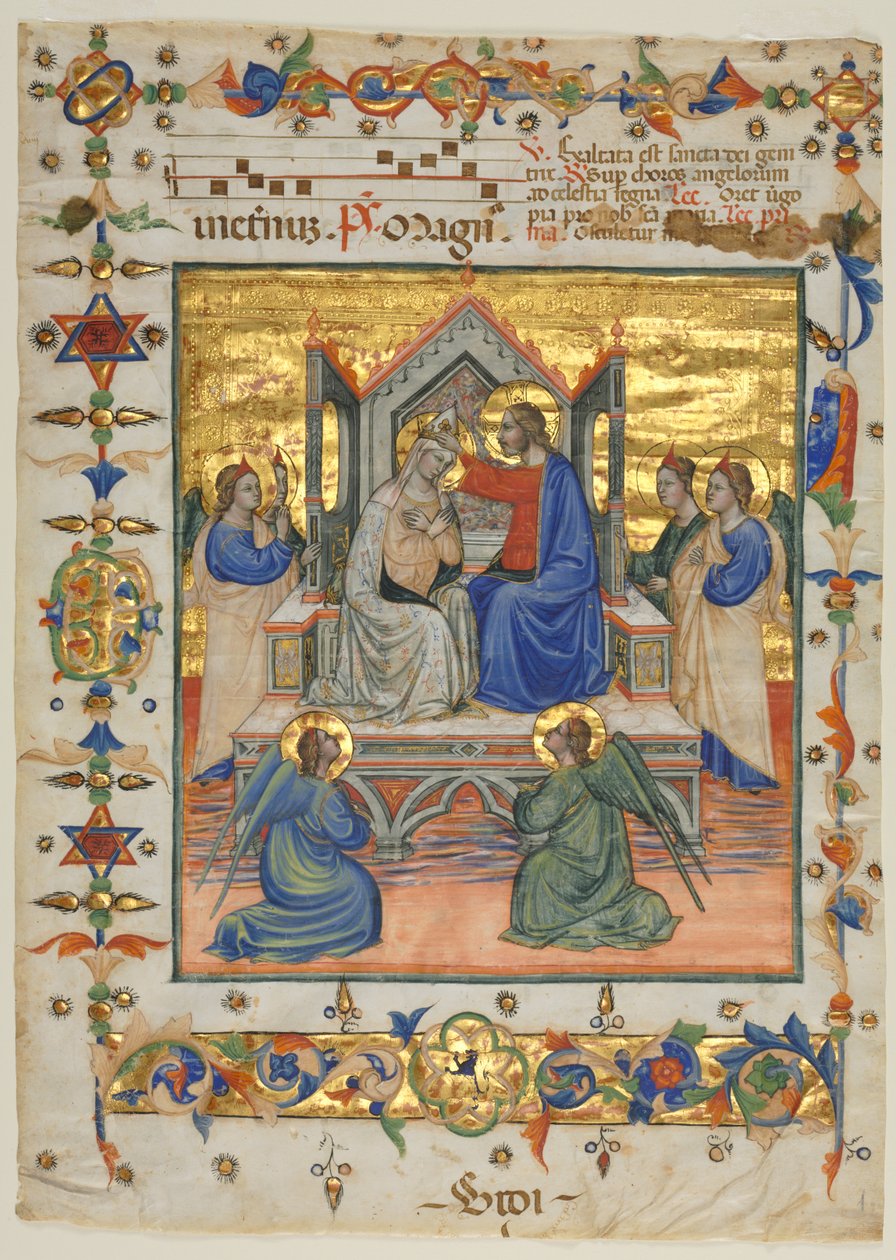 V. Exaltata est sancta dei geni
trix. R. Sup choros angelorum
ad celestia regna Lec. Oret vgo
pia pro nob sca maria. Lec pri
ma. Osculetur me
meterniis. Ps. Magni.